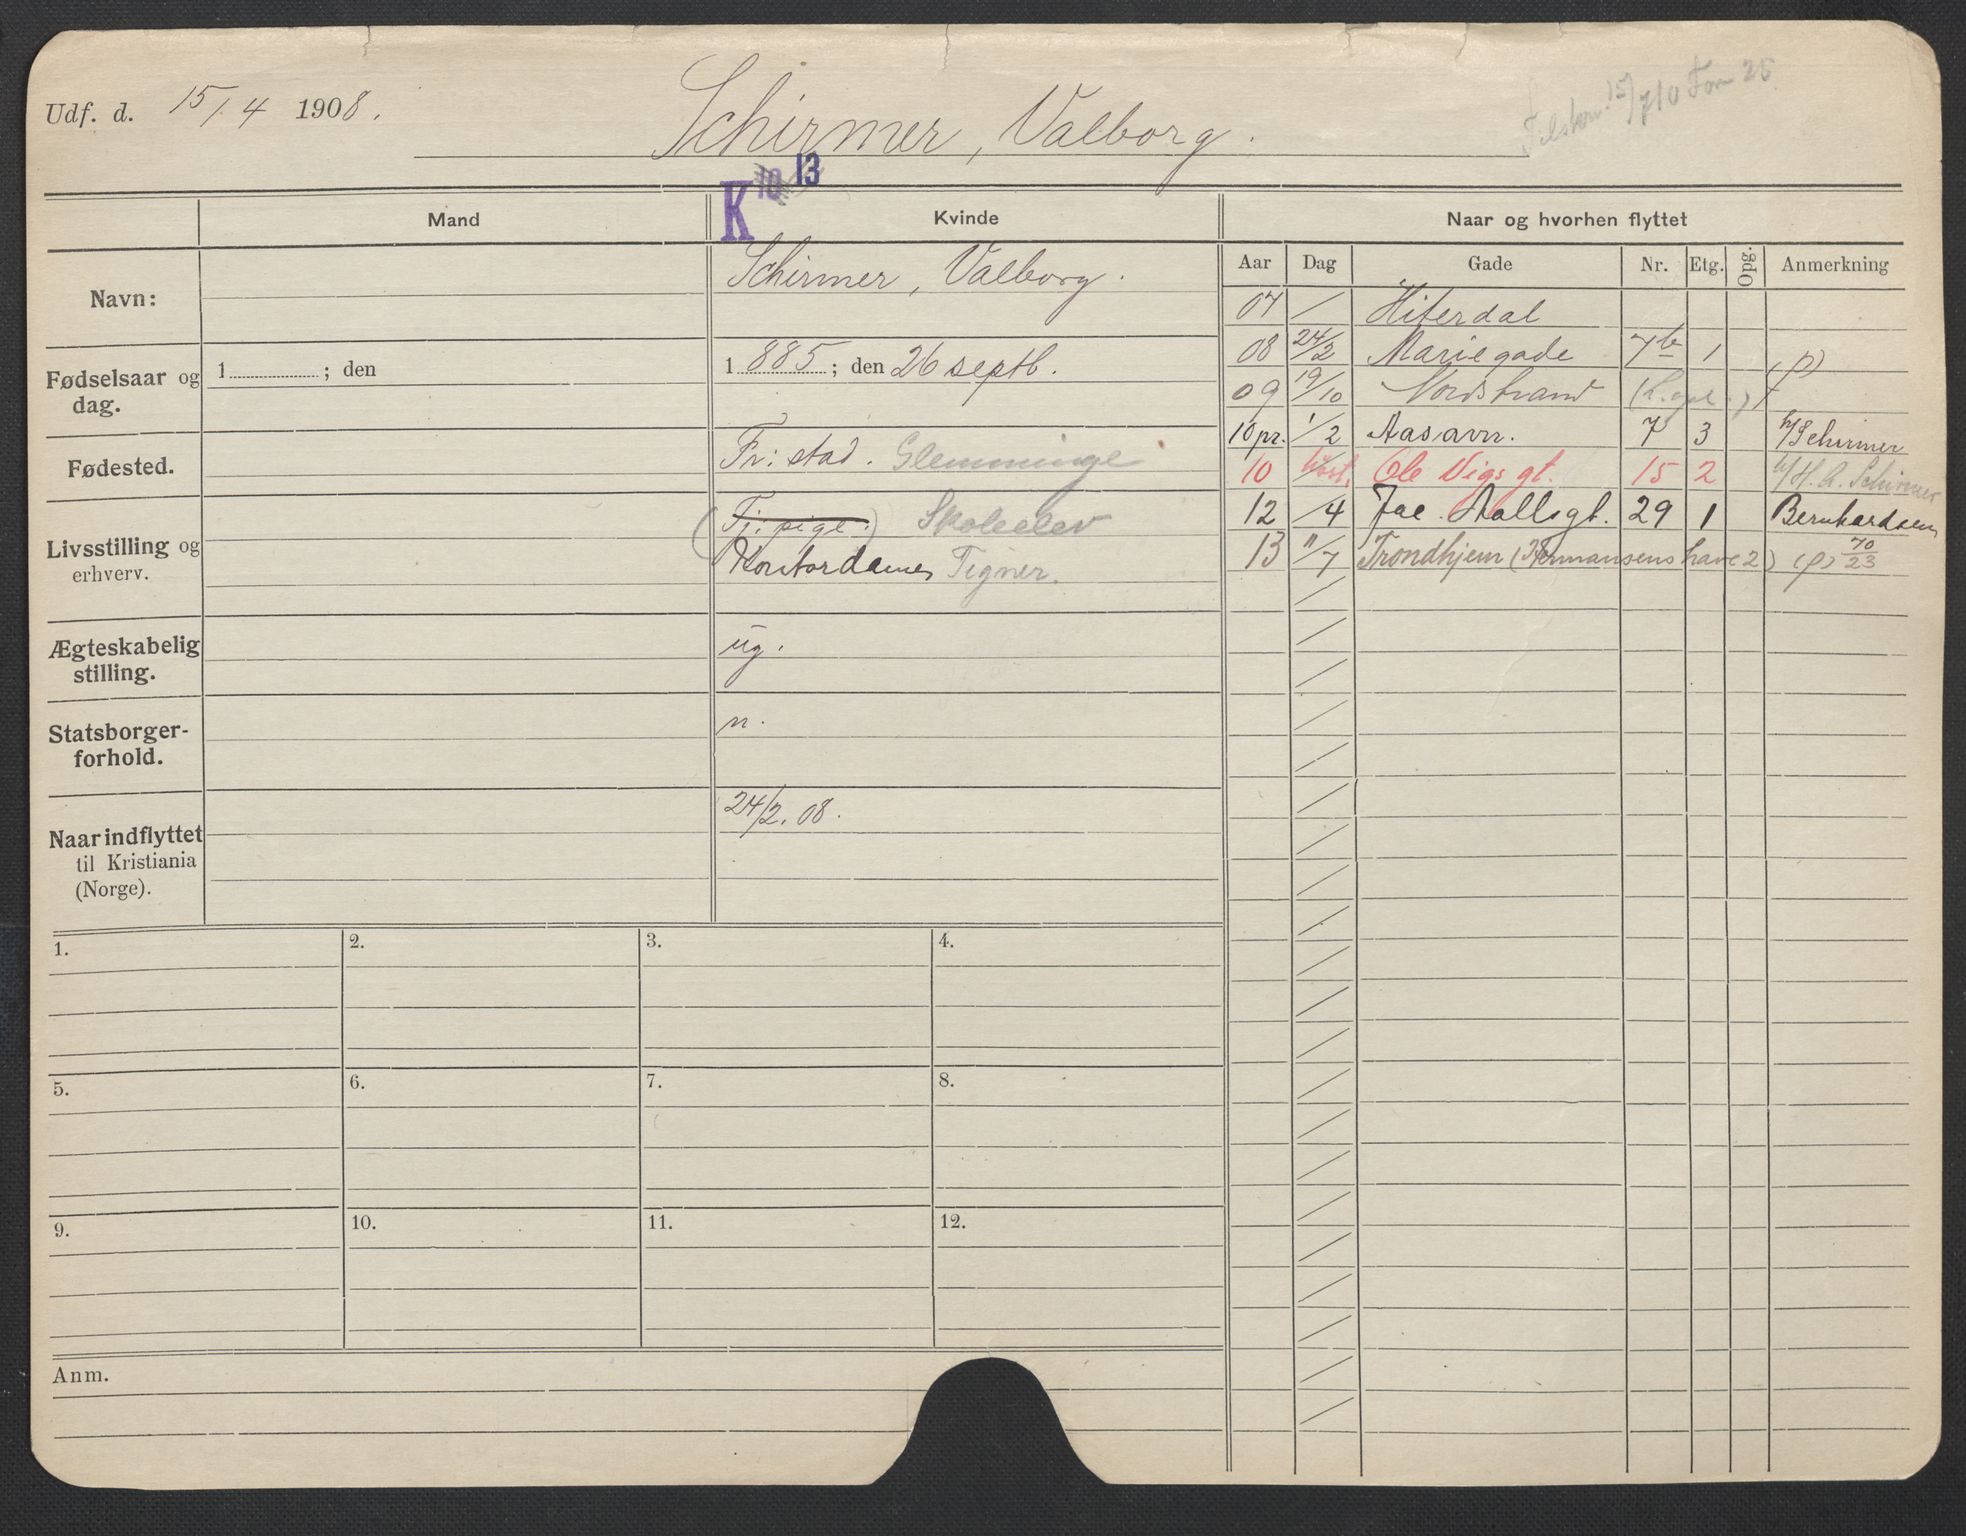 Udf. d. 15/4 1908.
Schirmer, Valborg.
15/710 Fom 25
K 10 13
Mand
Kvinde
Naar og hvorhen flyttet
Aar Dag Gade Nr. Etg. Opg. Anmerkning
Navn:
Schirmer, Valborg.
Fødselsaar og dag.
1 ; den
1 885 ; den 26 septb.
Fødested.
Fr: stad. Glemminge
Livsstilling og
erhverv.
(Tj: pige.) Skoleelev
Kontordame, Tegner.
Ægteskabelig
stilling.
ug.
Statsborger-
forhold.
n.
Naar indflyttet
til Kristiania
(Norge).
24/2. 08.
07 / Hiterdal
08 24/2 Mariegade 7b 1 (p)
09 19/10 Nordstrand
10 pr. 1/2 Aasavn. 7 3 h/Schirmer
10 Ole Vigs gt. 15 2 h/H. A. Schirmer
12 /4 Jac. Aallsgt. 29 1 Bernhardsen
13 "/7 Trondhjem (Hermansens have 2) (p) 70/23
1. 2. 3. 4.
5. 6. 7. 8.
9. 10. 11. 12.
Anm.